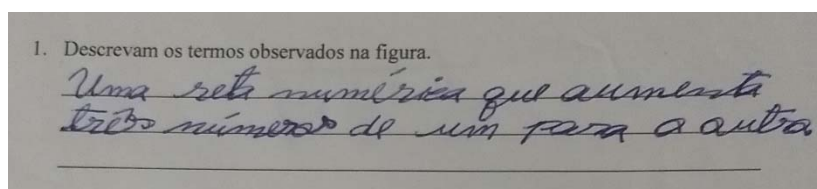 1. Descrevam os termos observados na figura.
Uma reta numérica que aumenta
três números de um para a outra